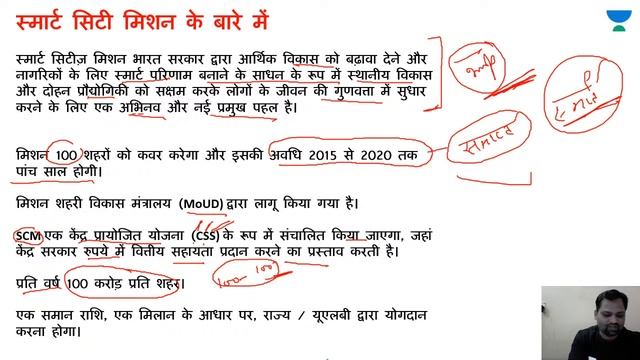 स्मार्ट सिटी मिशन के बारे में
स्मार्ट सिटीज़ मिशन भारत सरकार द्वारा आर्थिक विकास को बढ़ावा देने और
नागरिकों के लिए स्मार्ट परिणाम बनाने के साधन के रूप में स्थानीय विकास
और दोहन प्रौद्योगिकी को सक्षम करके लोगों के जीवन की गुणवत्ता में सुधार
करने के लिए एक अभिनव और नई प्रमुख पहल है।
मिशन 100 शहरों को कवर करेगा और इसकी अवधि 2015 से 2020 तक
पांच साल होगी।
मिशन शहरी विकास मंत्रालय (MoUD) द्वारा लागू किया गया है।
SCM एक केंद्र प्रायोजित योजना (CSS) के रूप में संचालित किया जाएगा, जहां
केंद्र सरकार रुपये में वित्तीय सहायता प्रदान करने का प्रस्ताव करती है।
प्रति वर्ष 100 करोड़ प्रति शहर।
100 100
एक समान राशि, एक मिलान के आधार पर, राज्य / यूएलबी द्वारा योगदान
करना होगा।